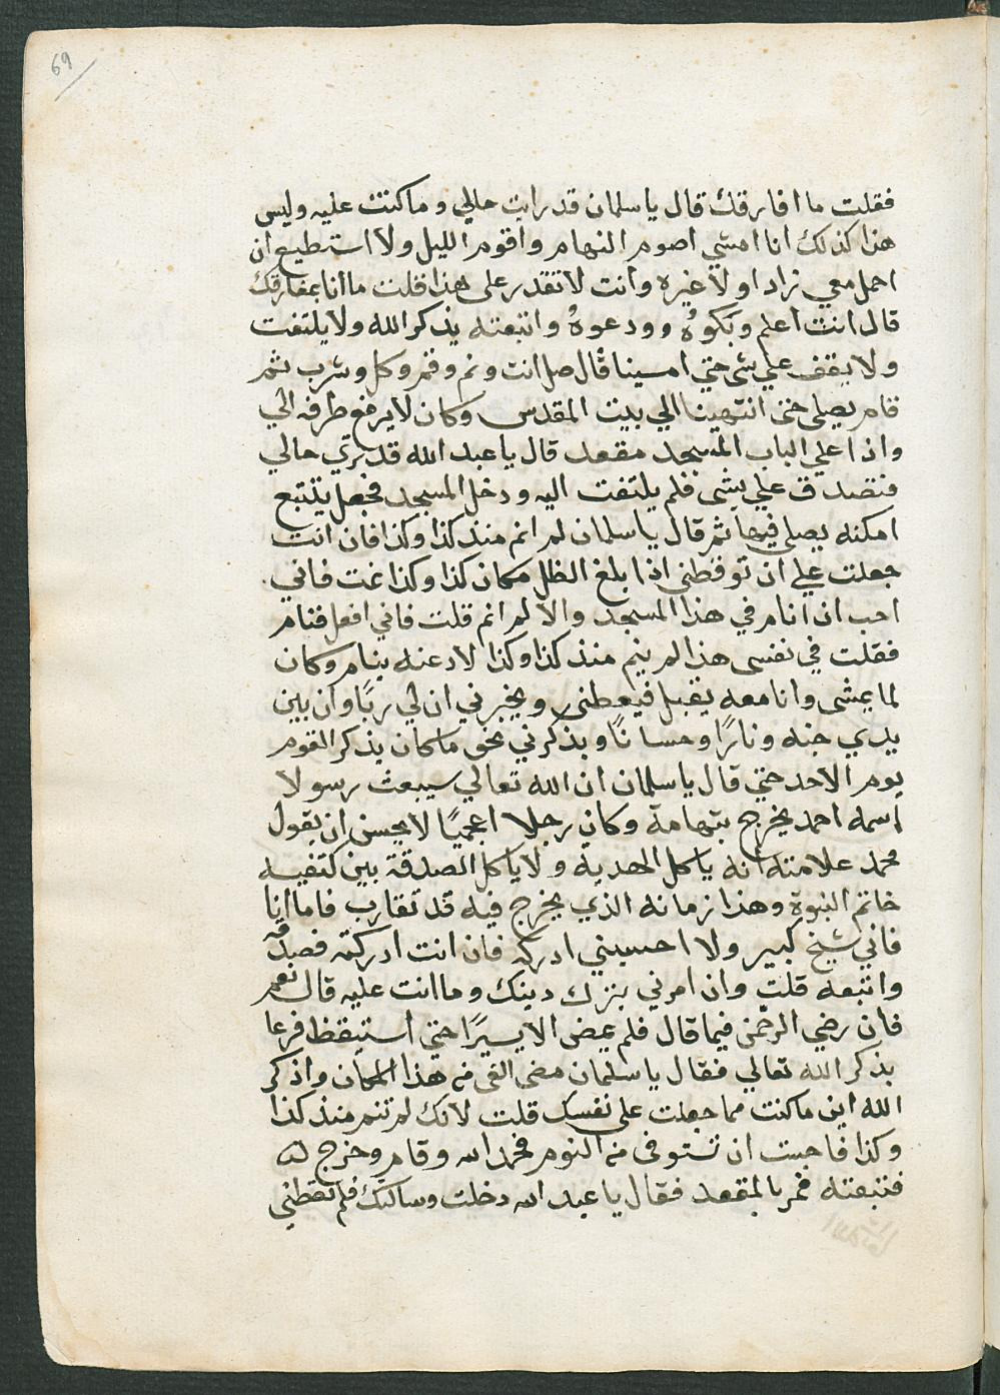 69
فقلت ما افارقك قال يا سلمان قد رايت حالي وما كنت عليه وليس
هذا كذلك انا امشي اصوم النهار واقوم الليل ولا استطيع ان
احمل معي زاد او لا غيره وانت لا تقدر على هذا قلت ما انا بمفارقك
قال انت اعلم وبكوهُ وودعوهُ واتبعته يذكر الله ولا يلتفت
ولا يقف علي شى حتي امسينا قال صل انت ونم وقم وكل وشرب ثم
قام يصلي حتى انتهينا الي بيت المقدس وكان لا يرفع طرفه الي
واذا علي الباب المسجد مقعد قال يا عبد الله قد تري حالي
فتصدق علي بشى فلم يلتفت اليه ودخل المسجد فجعل يتتبع
امكنه يصلي فيها ثم قال يا سلمان لم انم منذ كذا وكذا فان انت
جعلت علي ان توقظني اذا بلغ الظل مكان كذا وكذا نمت فاني
احب ان انام في هذا المسجد والا لم انم قلت فاني افعل فنام
فقلت في نفسى هذا لم ينم منذ كذا وكذا لادعنه ينام وكان
لما يمشى وانا معه يقبل فيعظني ويخبرني ان لي ربًا وان بين
يدي جنه ونارًا وحسانًا ويذكرني نحو ما كان يذكر القوم
يوم الاحد حتي قال يا سلمان ان الله تعالي سيبعث رسولا
اسمه احمد يخرج بتهامة وكان رجلا اعجميًا لا يحسن ان يقول
محمد علامته انه ياكل الهدية ولا ياكل الصدقة بين كتفيه
خاتم النبوة وهذا زمانه الذي يخرج فيه قد تقارب فاما انا
فاني شيخ كبير ولا احسبني ادركه فان انت ادركته فصدقه
واتبعه قلت وان امرني بترك دينك وما انت عليه قال نعم
فان رضي الرحمن فيما قال فلم يمض الا يسيرًا حتى استيقظ فزعا
يذكر الله تعالي فقال يا سلمان مضى الفى من هذا المكان واذكر
الله اين ما كنت مما جعلت على نفسك قلت لانك لم تنم منذ كذا
وكذا فاحببت ان تستوفى من النوم فحمد الله وقام وخرج
فتبعته فمر بالمقعد فقال يا عبد الله دخلت وسالتك فلم تعطني